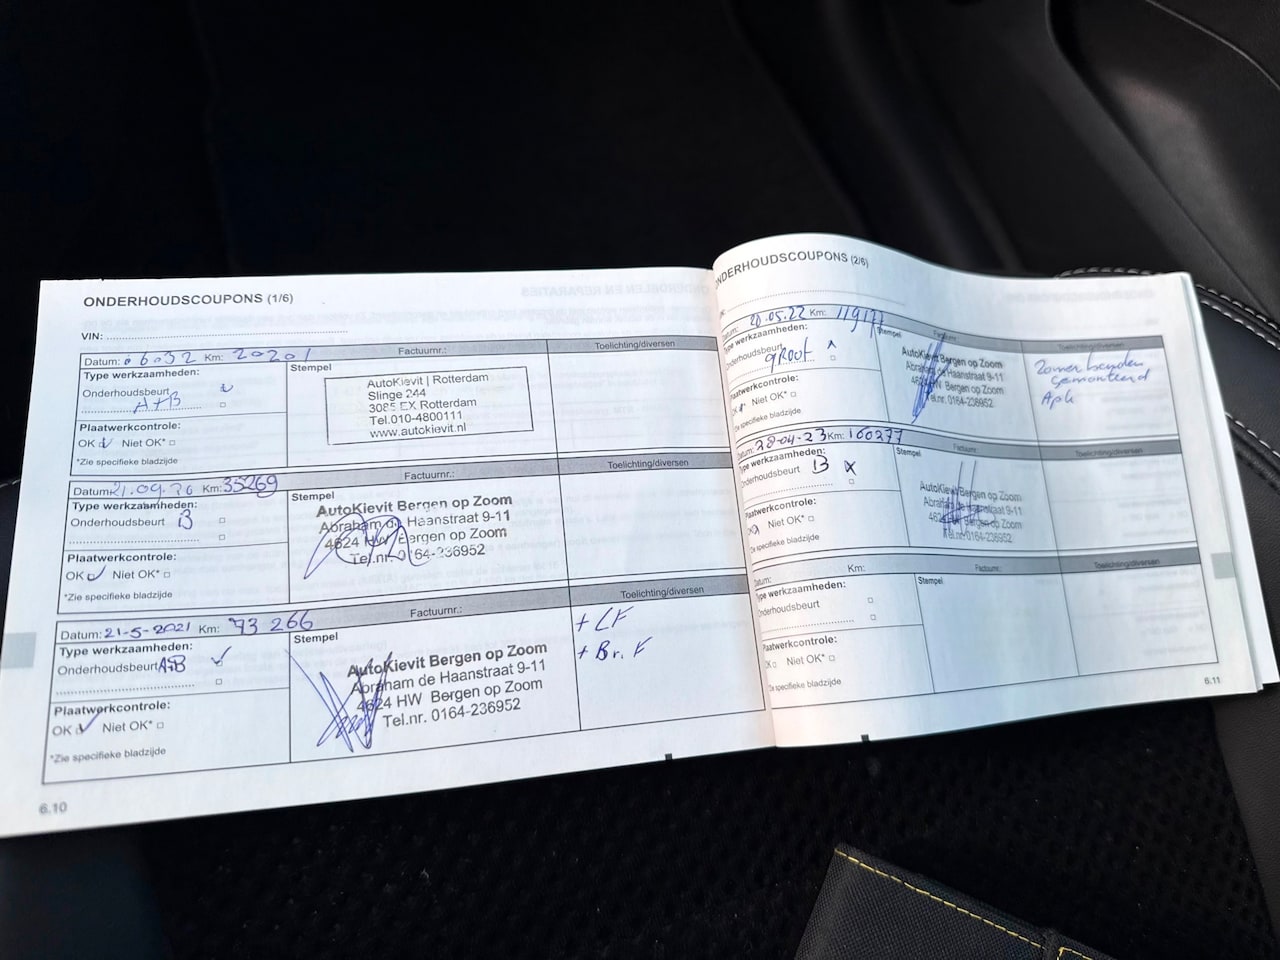 ONDERHOUDSCOUPONS (1/6)
VIN:
Datum: Km: 20201 Factuurnr.: Toelichting/diversen
Type werkzaamheden:
Onderhoudsbeurt
A+B
Plaatwerkcontrole:
OK Niet OK*
*Zie specifieke bladzijde
Stempel
AutoKievit | Rotterdam
Slinge 244
3085 EX Rotterdam
Tel.010-4800111
www.autokievit.nl
Datum: 21.09.20 Km: 35269 Factuurnr.: Toelichting/diversen
Type werkzaamheden:
Onderhoudsbeurt B
Plaatwerkcontrole:
OK Niet OK*
*Zie specifieke bladzijde
Stempel
AutoKievit Bergen op Zoom
Abraham de Haanstraat 9-11
4624 HW Bergen op Zoom
Tel.nr. 0164-236952
Datum: 21-5-2021 Km: 73 266 Factuurnr.: Toelichting/diversen
Type werkzaamheden:
Onderhoudsbeurt A+B
Plaatwerkcontrole:
OK Niet OK*
*Zie specifieke bladzijde
Stempel
AutoKievit Bergen op Zoom
Abraham de Haanstraat 9-11
4624 HW Bergen op Zoom
Tel.nr. 0164-236952
+ LF
+ Br. F
6.10
ONDERHOUDSCOUPONS (2/6)
Datum: 20.05.22 Km: Stempel Toelichting/diversen
Type werkzaamheden:
Onderhoudsbeurt
groot
Plaatwerkcontrole:
OK Niet OK*
*Zie specifieke bladzijde
AutoKievit Bergen op Zoom
Abraham de Haanstraat 9-11
4624 HW Bergen op Zoom
Tel.nr. 0164-236952
Zomerbanden
gemonteerd
Apk
Datum: 28-04-23 Km: 160277 Factuurnr.: Toelichting/diversen
Type werkzaamheden:
Onderhoudsbeurt B
Plaatwerkcontrole:
OK Niet OK*
*Zie specifieke bladzijde
Stempel
AutoKievit Bergen op Zoom
Abraham de Haanstraat 9-11
4624 HW Bergen op Zoom
Tel.nr. 0164-236952
Datum: Km: Factuurnr.: Toelichting/diversen
Type werkzaamheden:
Onderhoudsbeurt
Plaatwerkcontrole:
OK Niet OK*
*Zie specifieke bladzijde
Stempel
6.11